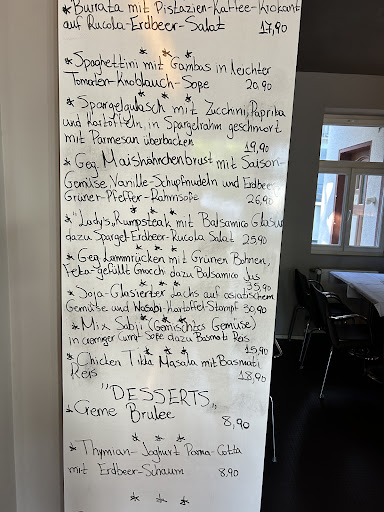 * Burrata mit Pistazien-Kaffee-Krokant
auf Rucola-Erdbeer-Salat 17,90
* * *
* Spaghettini mit Gambas in leichter
Tomaten-Knoblauch-Soße 20,90
* * *
* Spargelgulasch mit Zucchini, Paprika
und Kartoffeln, in Spargelrahm geschmort
mit Parmesan überbacken
* * * 19,90
* Geg. Maishähnchenbrust mit Saison-
Gemüse, Vanille-Schupfnudeln und Erdbeer
Grüner-Pfeffer-Rahmsoße 26,90
* * *
* "Lady's" Rumpsteak mit Balsamico Glasur
dazu Spargel-Erdbeer-Rucola Salat 25,90
* * *
* Geg. Lammrücken mit Grünen Bohnen,
Feta-gefüllt Gnocchi dazu Balsamico Jus
* * * 35,90
* Soja-Glasierter Lachs auf asiatischem
Gemüse und Wasabi-Kartoffel-Stampf 30,90
* * *
* Mix Sabji (Gemischtes Gemüse)
in cremiger Curry-Soße dazu Basmati Reis
* * * 15,90
* Chicken Tikka Masala mit Basmati
Reis 18,90
"DESSERTS"
* Creme Brulee
8,90
* * *
* Thymian-Joghurt Panna-Cotta
mit Erdbeer-Schaum 8,90
* * *